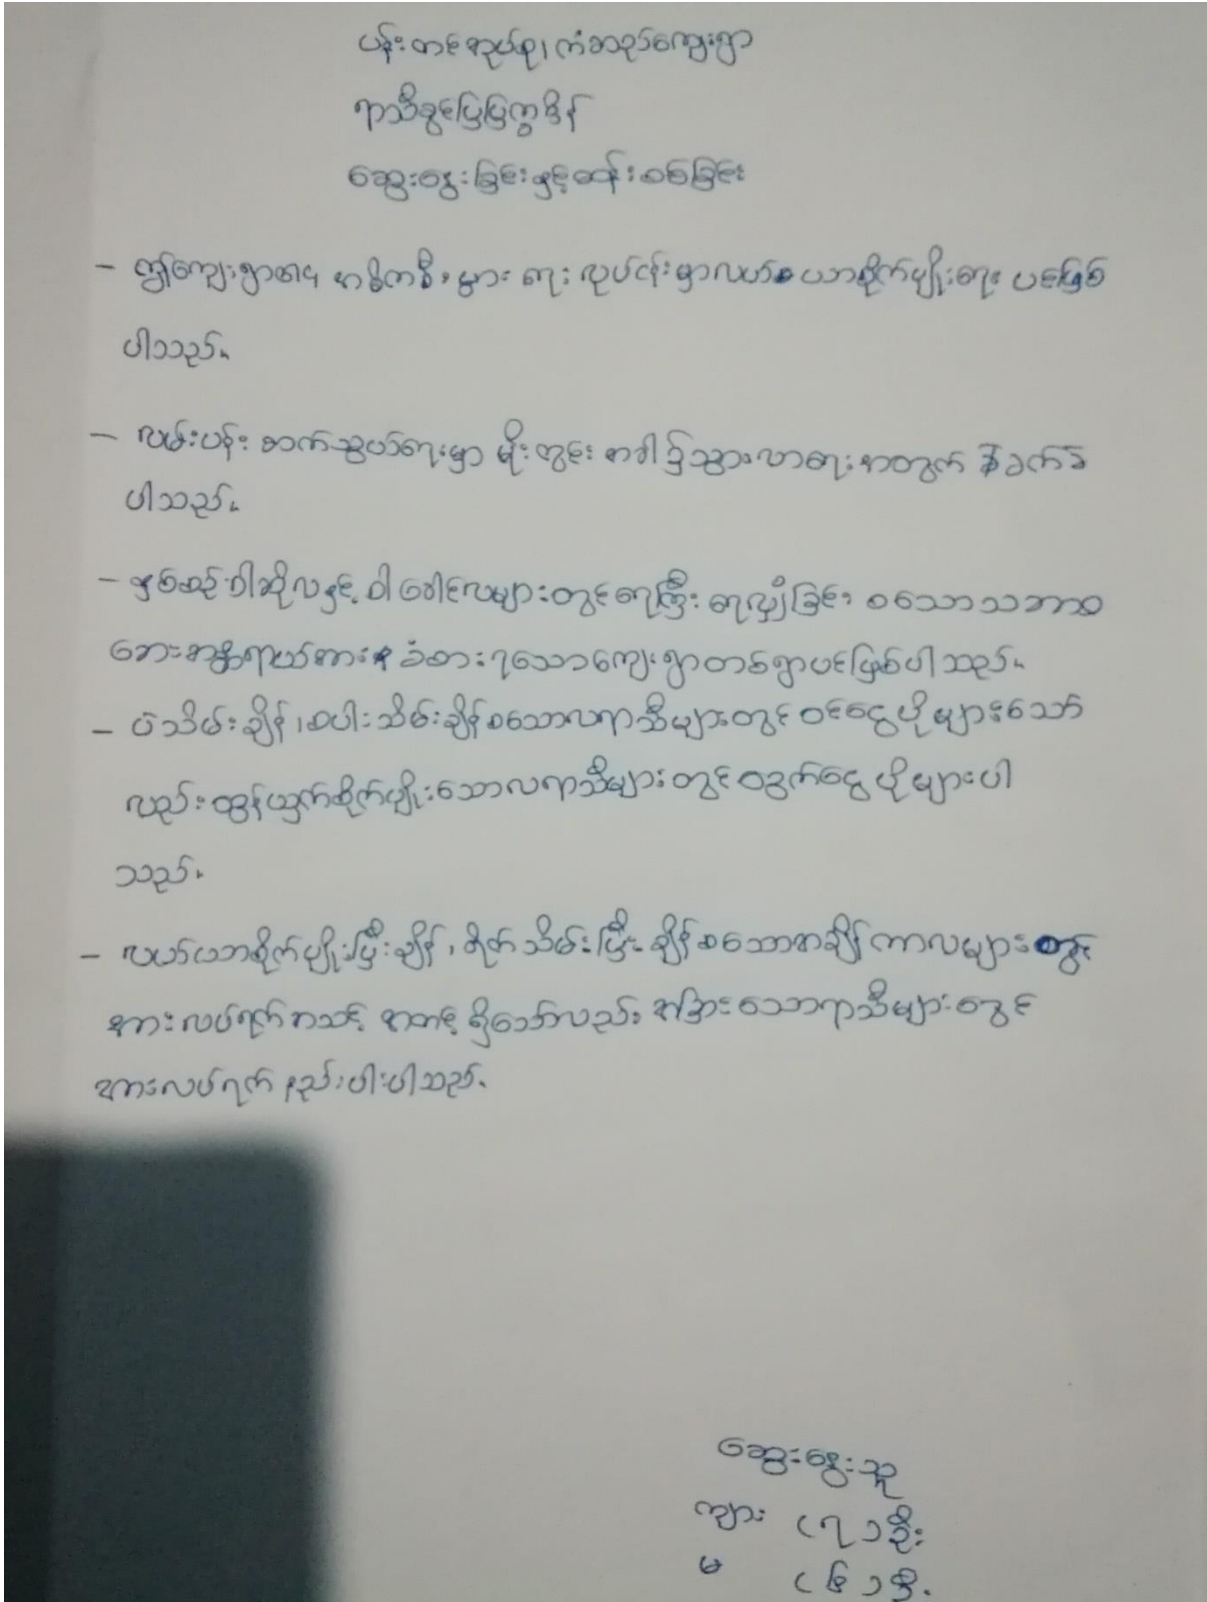 ပန်းတင်အုပ်စု၊ ကံသာကျေးရွာ
ရာသီခွင်ပြပြက္ခဒိန်
ဆွေးနွေးခြင်းနှင့်ဆန်းစစ်ခြင်း
– ဤကျေးရွာ၏ အဓိကစီးပွားရေး လုပ်ငန်းမှာလယ်ယာစိုက်ပျိုးရေး ပင်ဖြစ်
ပါသည်။
– လမ်းပန်း ဆက်သွယ်ရေးမှာ မိုးတွင်း အခါ၌သွားလာရေးအတွက် ခက်ခဲ
ပါသည်။
– နှစ်စဉ် ဝါဆိုလနှင့် ဝါခေါင်လများတွင်ရေကြီး ရေလျှံခြင်း စသောသဘာဝ
ဘေးအန္တရာယ်အား ခံစားရသောကျေးရွာတစ်ရွာပင်ဖြစ်ပါသည်။
– ပဲသိမ်းချိန်၊ စပါးသိမ်းချိန်စသောလရာသီများတွင် ဝင်ငွေပိုများသော်
လည်း ထွန်ယက်စိုက်ပျိုးသောလရာသီများတွင် ထွက်ငွေ ပိုများပါ
သည်။
– လယ်ယာစိုက်ပျိုးပြီးချိန်၊ ရိတ်သိမ်းပြီးချိန်စသောအချိန်ကာလများတွင်
အားလပ်ရက်အသင့် အတင့် ရှိသော်လည်း အခြားသောရာသီများတွင်
အားလပ်ရက် နည်းပါးပါသည်။
ဆွေးနွေးသူ
ကျား (၇) ဦး
မ (၆) ဦး